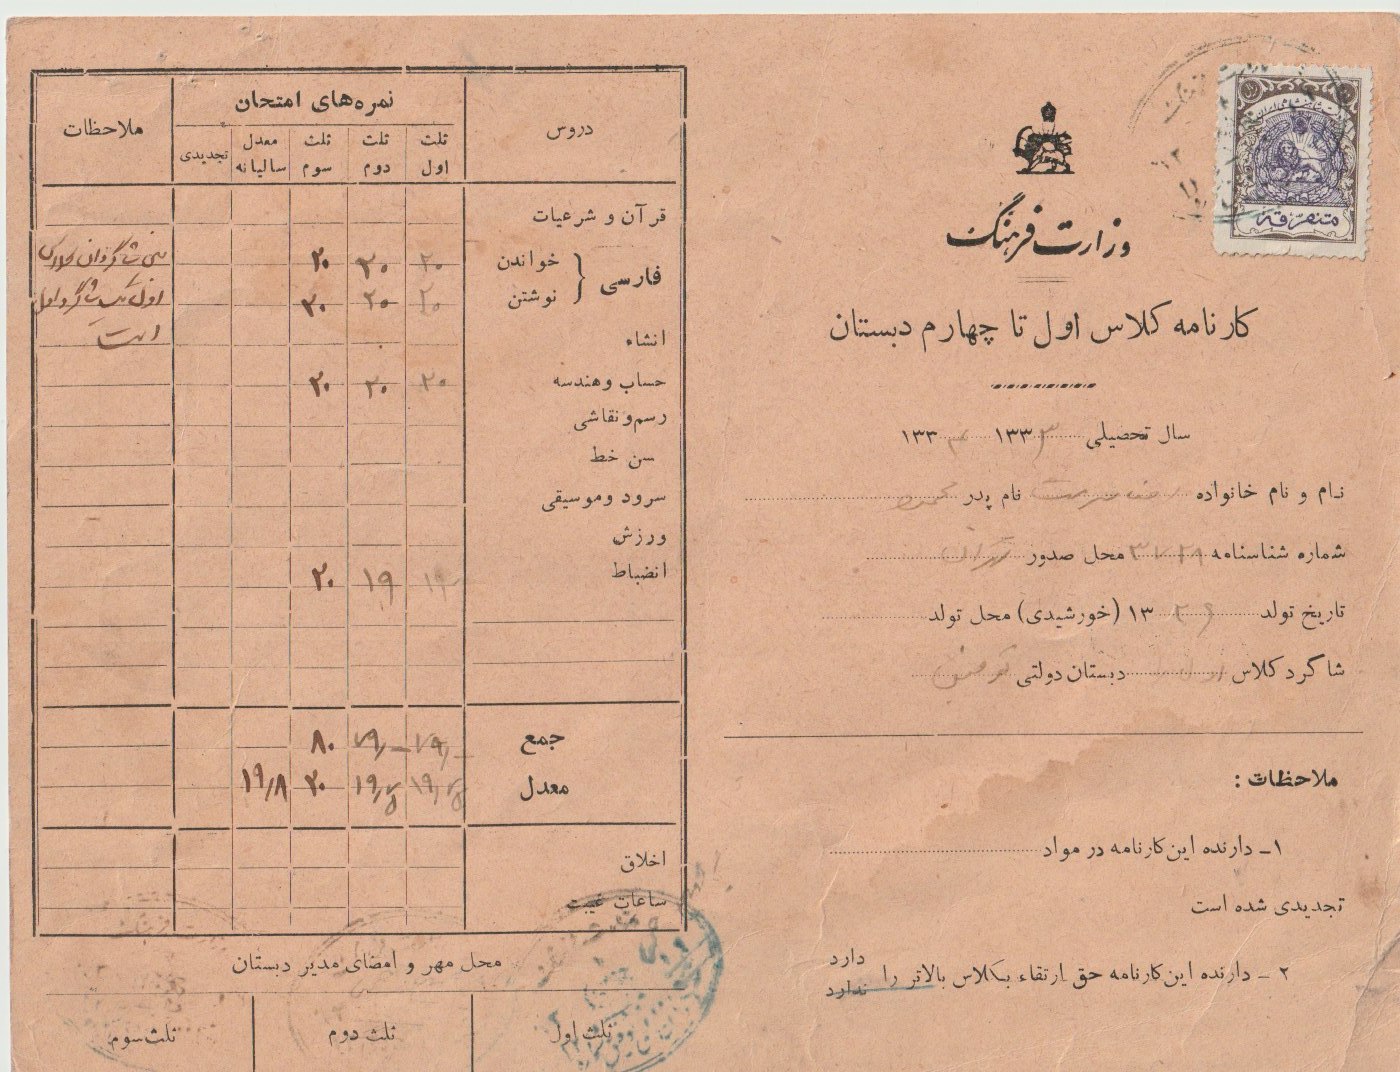 وزارت فرهنگ
متفرقه
کارنامه کلاس اول تا چهارم دبستان
سال تحصیلی ۱۳۳۳ ۱۳۳۴
نام و نام خانواده نام پدر محمود
شماره شناسنامه محل صدور تهران
تاریخ تولد ۱۳۲۶ (خورشیدی) محل تولد
شاگرد کلاس اول دبستان دولتی توفیق
ملاحظات :
۱ـ دارنده این کارنامه در مواد
تجدیدی شده است
۲ ـ دارنده این کارنامه حق ارتقاء بکلاس بالاتر را دارد ندارد
دروس نمره‌های امتحان ملاحظات
ثلث اول ثلث دوم ثلث سوم معدل سالیانه تجدیدی
قرآن و شرعیات
فارسی
خواندن ۲۰ ۲۰ ۲۰
نوشتن ۲۰ ۲۰ ۲۰
انشاء
حساب و هندسه ۲۰ ۲۰ ۲۰
رسم و نقاشی
سن خط
سرود و موسیقی
ورزش
انضباط ۱۹ ۱۹ ۲۰
شاگرد اول
است
جمع ۷۹ ۷۹ ۸۰
معدل ۱۹/۷۵ ۱۹/۷۵ ۲۰ ۱۹/۸
اخلاق
ساعات غیبت
محل مهر و امضای مدیر دبستان
ثلث اول ثلث دوم ثلث سوم